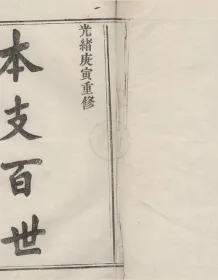 光緒庚寅重修
本支百世